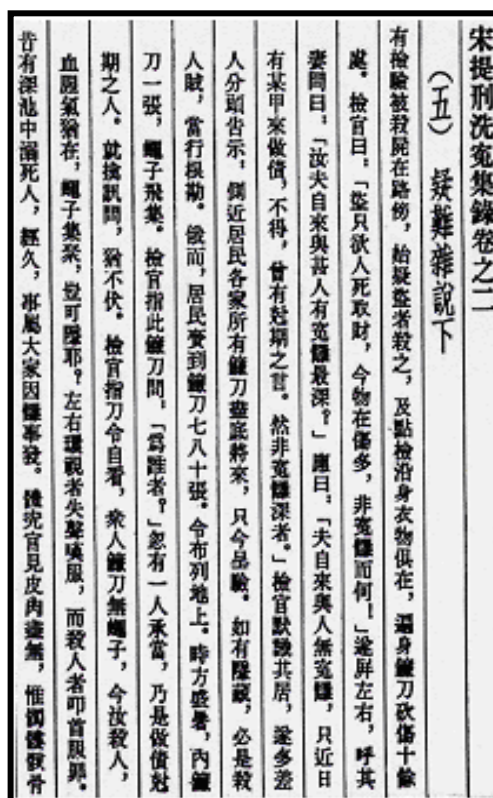 宋提刑洗冤集錄卷之二
(五) 疑難雜說下
有檢驗被殺屍在路傍，始疑盜者殺之，及點檢沿身衣物俱在，遍身鐮刀砍傷十餘
處。檢官曰：「盜只欲人死取財，今物在傷多，非冤讎而何！」遂屏左右，呼其
妻問曰：「汝夫自來與甚人有冤讎最深？」應曰：「夫自來與人無冤讎，只近日
有某甲來做債，不得，曾有尅期之言。然非冤讎深者。」檢官默識其居，遂多差
人分頭告示，側近居民各家所有鐮刀盡底將來，只今呈驗。如有隱藏，必是殺
人賊，當行根勘。俄而，居民賫到鐮刀七八十張。令布列地上。時方盛暑，內鐮
刀一張，蠅子飛集。檢官指此鐮刀問，「爲誰者？」忽有一人承當，乃是做債尅
期之人。就擒訊問，猶不伏。檢官指刀令自看，衆人鐮刀無蠅子，今汝殺人，
血腥氣猶在，蠅子集聚，豈可隱耶？左右環視者失聲嘆服，而殺人者叩首服罪。
昔有深池中溺死人，經久，事屬大家因讎事發。體究官見皮肉盡無，惟髑髏骸骨